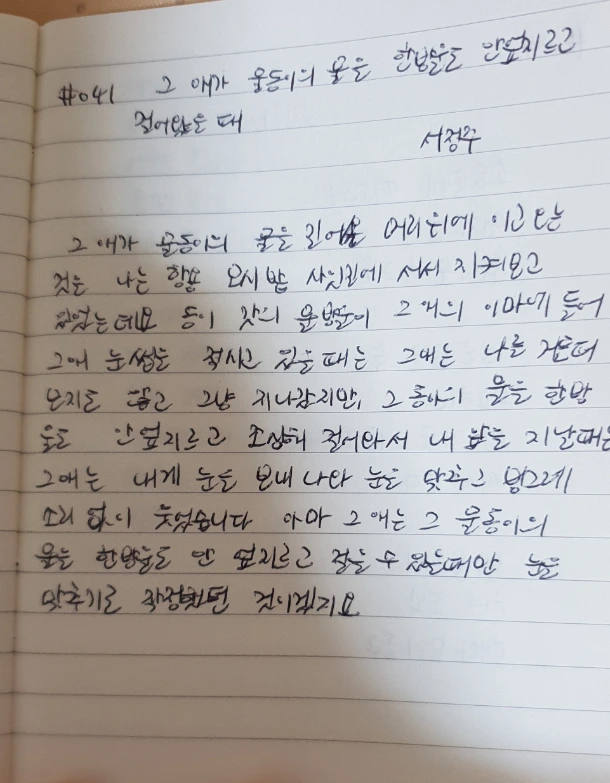 #041 그 애가 물동이의 물을 한방울도 안엎지르고
걸어왔을 때
서정주
그 애가 물동이의 물을 길어올 머리위에 이고 오는
것을 나는 항용 모시밭 사잇길에 서서 지켜보고
있었는데요 동이 갓의 물방울이 그 애의 이마에 들어
그애 눈썹을 적시고 있을때는 그애는 나를 거들떠
보지도 않고 그냥 지나갔지만, 그 동이의 물을 한방
울도 안엎지르고 조심해 걸어와서 내 앞을 지날때는
그애는 내게 눈을 보내 나와 눈을 맞추고 빙그레
소리 없이 웃었습니다 아마 그 애는 그 물동이의
물을 한방울도 안 엎지르고 걸을 수 있을때만 눈을
맞추기로 작정했던 것이겠지요